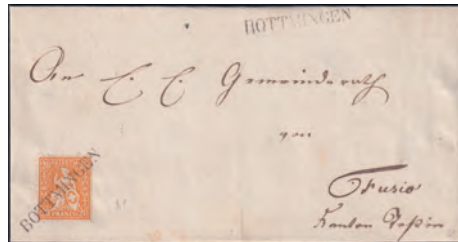 BOTTMINGEN
An E. E. Gemeinderath
von
Fusio
Kanton Tessin
BOTTMINGEN